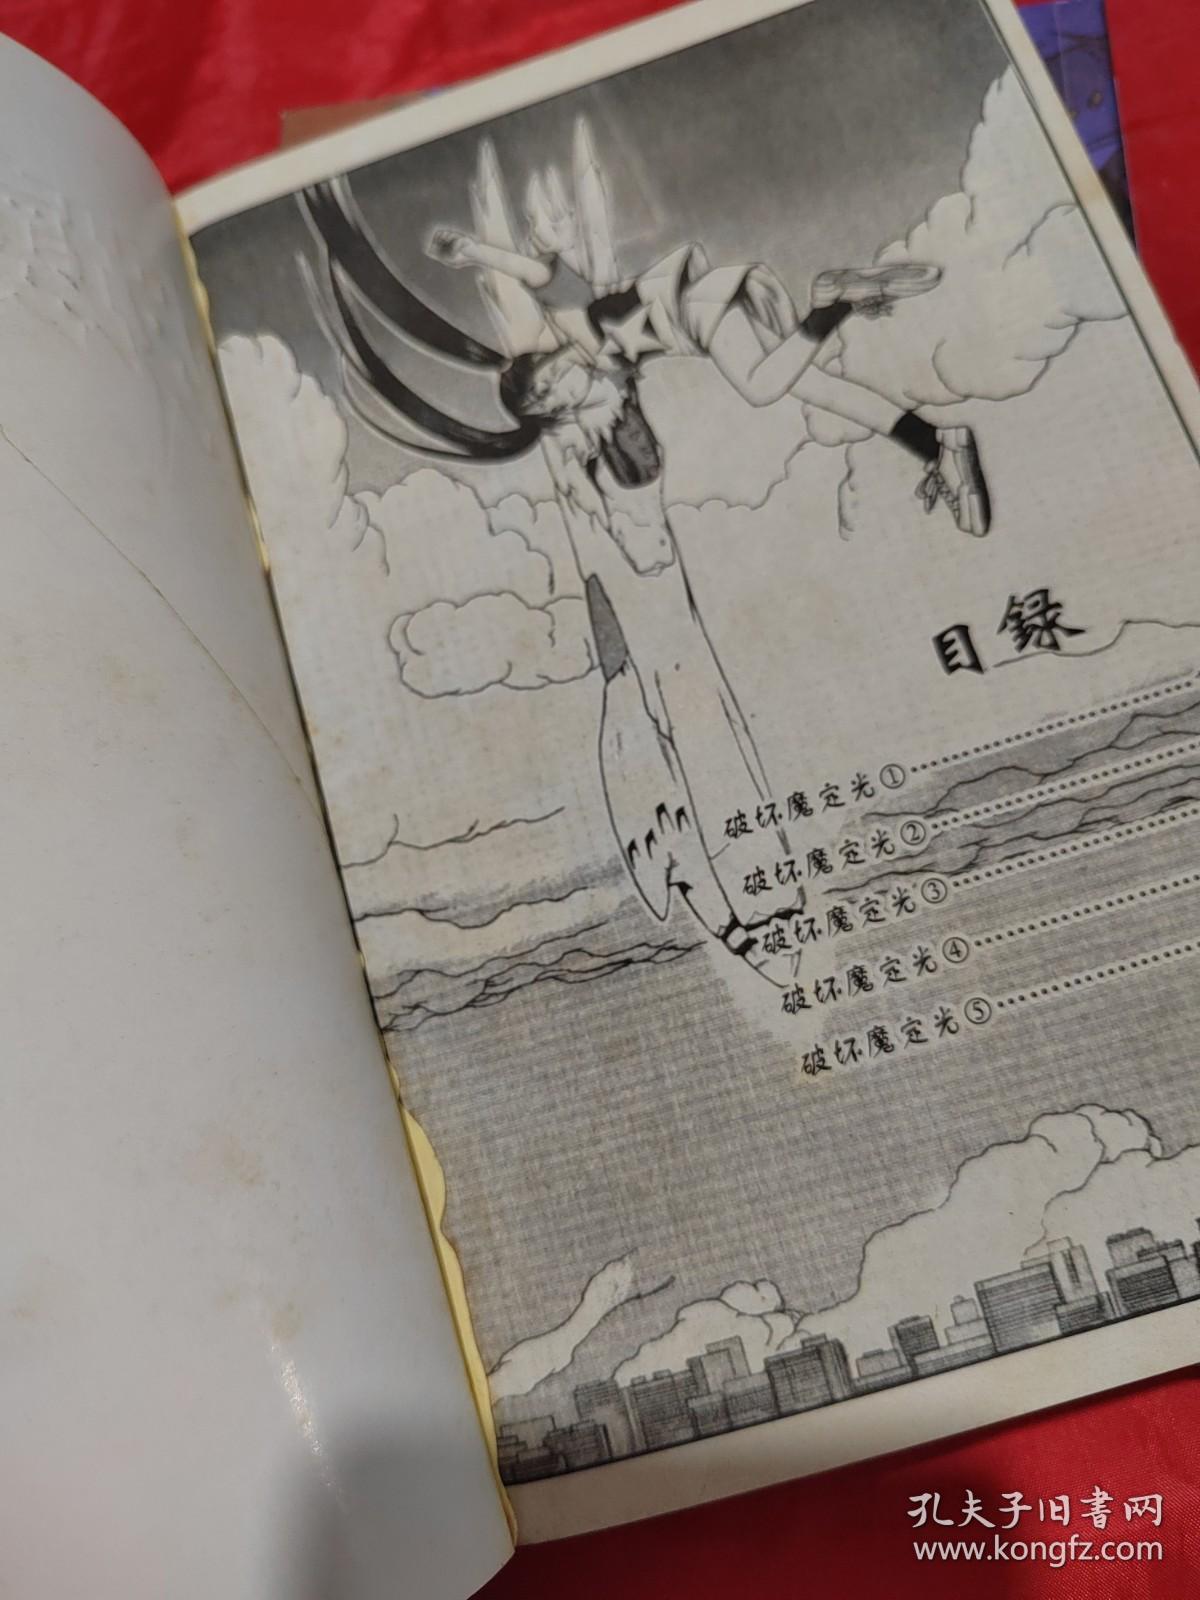 目錄
破坏魔定光①…………
破坏魔定光②…………
破坏魔定光③…………
破坏魔定光④…………
破坏魔定光⑤…………
孔夫子旧書网
www.kongfz.com